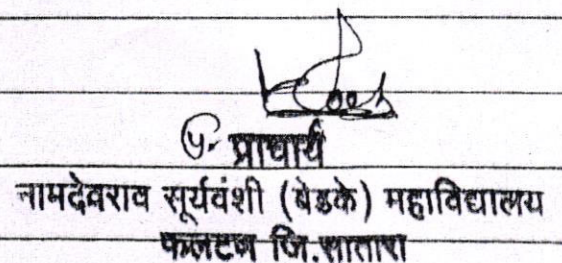 प्राचार्य
नामदेवराव सूर्यवंशी (बेडके) महाविद्यालय
फलटण जि.सातारा